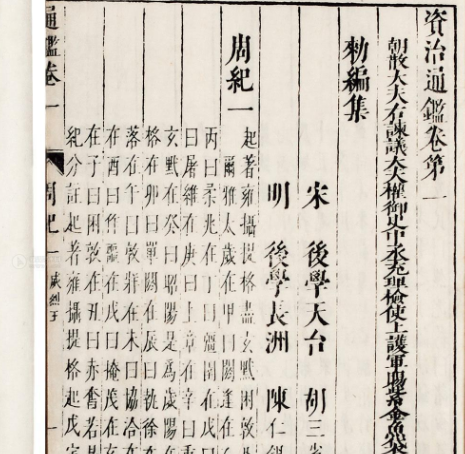 資治通鑑卷第一
朝散大夫右諫議大夫權御史中丞充理檢使上護軍賜紫金魚袋
勑編集
宋 後學天台 胡三省
明 後學長洲 陳仁錫
周紀一
起著雍攝提格盡玄黓困敦
爾雅太歲在甲曰閼逢在
丙曰柔兆在丁曰彊圉在戊曰
曰屠維在庚曰上章在辛曰重
玄黓在癸曰昭陽是爲歲陽在
格在卯曰單閼在辰曰執徐在
落在午曰敦牂在未曰協洽在
在酉曰作噩在戌曰掩茂在亥
在子曰困敦在丑曰赤奮若
紀分註起著雍攝提格起戊寅
通鑑卷一 周紀 威烈王 一